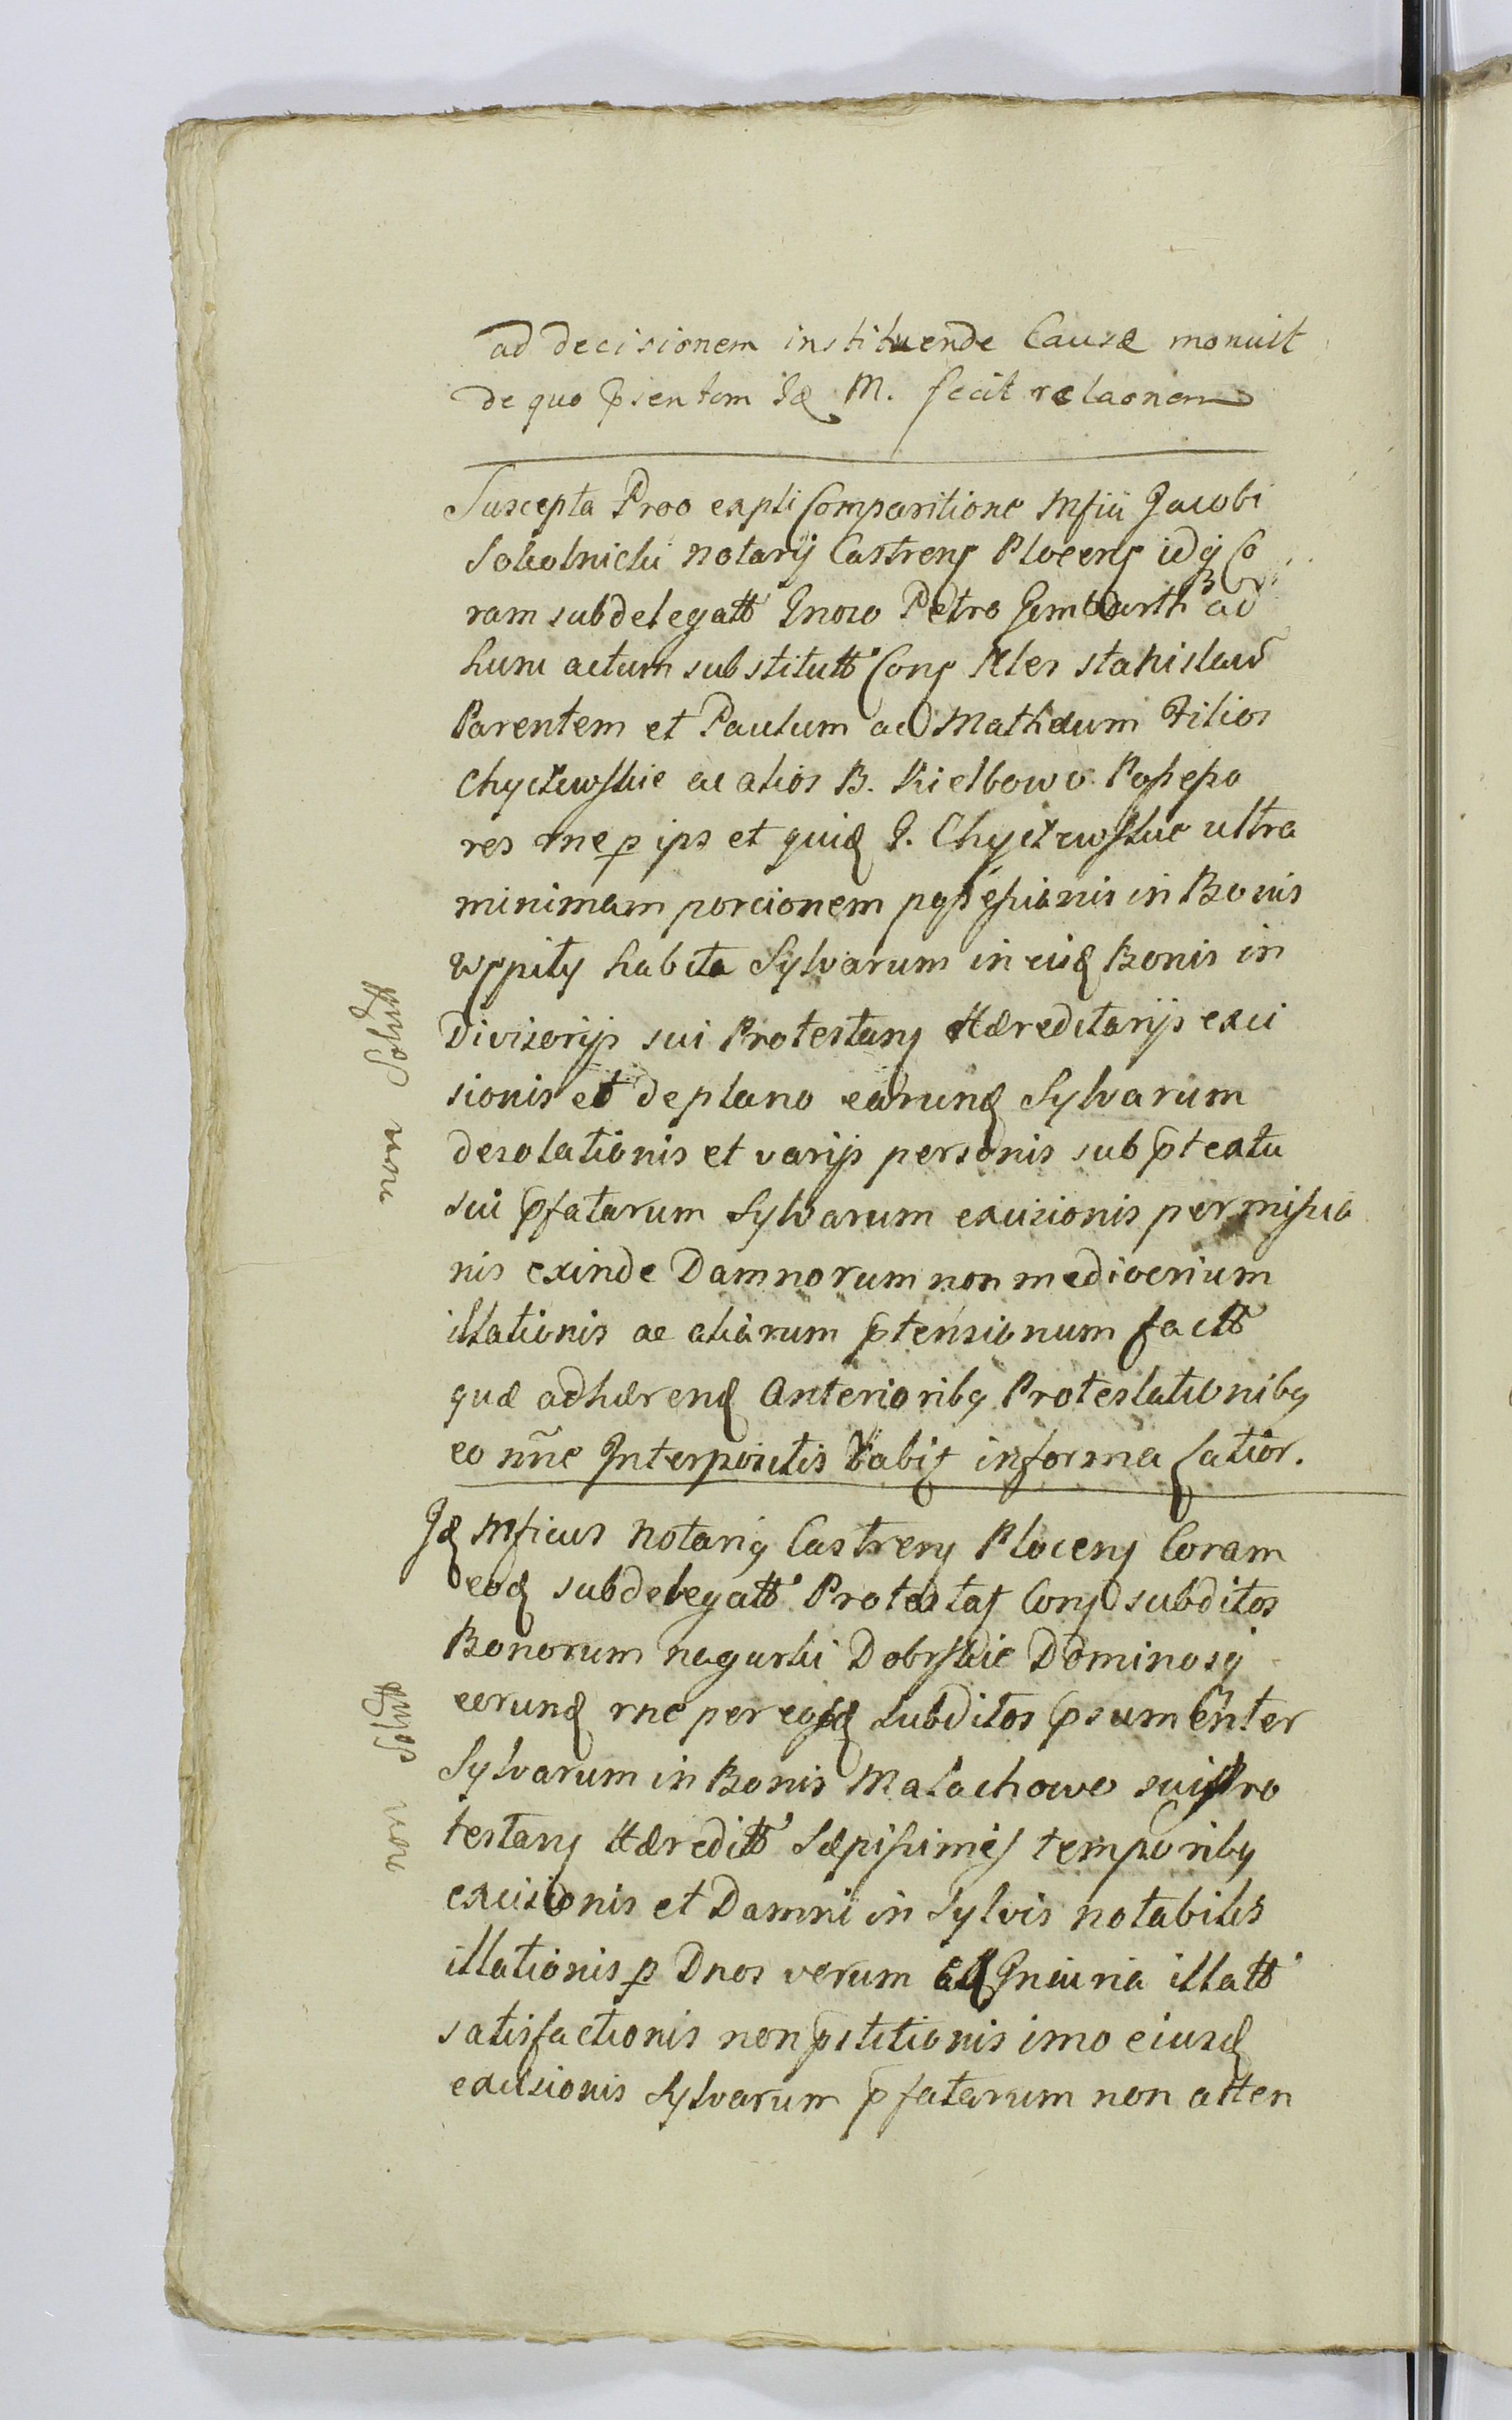 ad decisionem instituende Causæ monuit
de quo p̄sentem Id M. fecit relaonem
Suscepta Proo expti Comparitione Mfici Jacobi
Sokolnicki notarij Castrens Plocens idq Co
ram subdelegatt Gnoso Petro Gembarth ad
hunc actum substitutt Cons Nles Stanislaum
Parentem et Paulum ac Mathæum Filios
Chyczewskie ac alios B. Kiełbowo Possesso
res rne p ips et quid G. Chyczewskie ultra
minimam porcionem possessionis in Bonis
Wppity habita Sylvarum in eisd Bonis in
Divisorijs sui Protestans Hæreditarijs exci
sionis et de plano earund Sylvarum
desolationis et varijs personis sub p̄textu
sui p̄fatarum Sylvarum excisionis permissio
nis exinde Damnorum non mediocrium
illationis ac aliarum p̄tensionum factt
quæ adhærend Anterioribq Protestationibq
eo nñe Interpositis in forma latior.
Id Mficus Notariq Castrens Plocens Coram
eod subdelegatt Protestat Cons subditos
Bonorum nagurki Dobrskie Dominosq
eorund rne per eosd subditos p̄sumenter
Sylvarum in Bonis Malachowo sui Pro
testans Hæreditt Sæpissimis temporibq
excisionis et Damni in Sylvis notabilis
illationis p Dnos verum Iniuria illatt
satisfactionis non p̄stitionis imo eiusd
excisionis Sylvarum p̄fatarum non atten
non
non